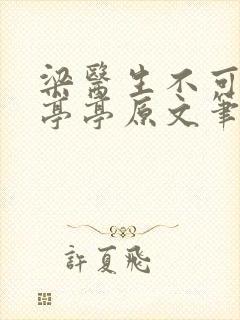 梁醫生不可
亭亭原文筆
許夏飛